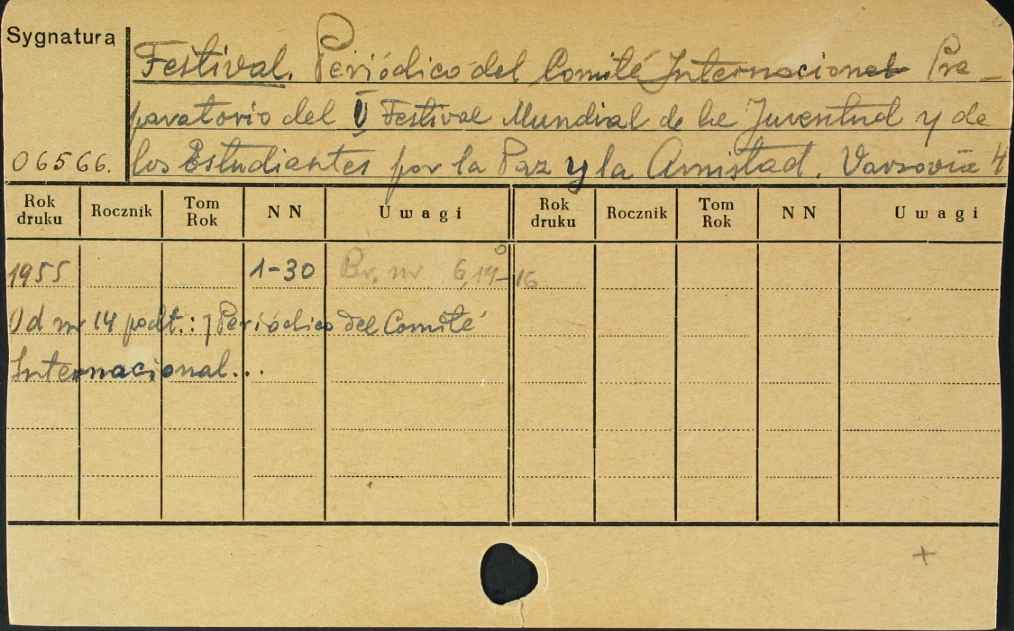 Sygnatura
Festival. Periódico del Comité Internacional Pre-
paratorio del V Festival Mundial de la Juventud y de
06566. los Estudiantes por la Paz y la Amistad. Varsovia 4
Rok druku Rocznik Tom Rok NN Uwagi Rok druku Rocznik Tom Rok NN Uwagi
1955 1-30 Br. nr 6,14-16
Od nr 14 podt.: Periódico del Comité
Internacional...
+